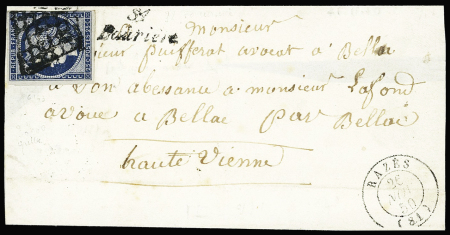 81
Laurière
Monsieur
Puifferat avocat à Bellac
a son abessance a monsieur Lafond
avoué a Bellac par Bellac
haute Vienne
RAZÈS
26
(81)